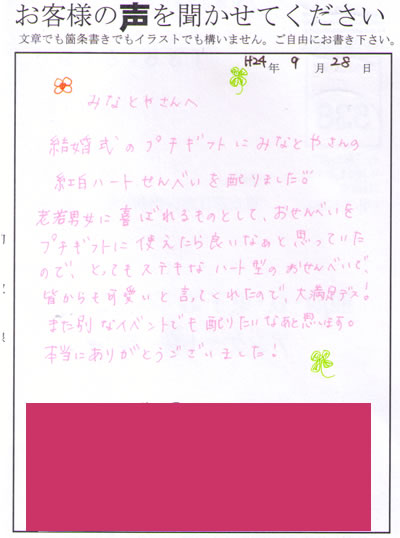 お客様の声を聞かせてください
文章でも箇条書きでもイラストでも構いません。ご自由にお書き下さい。
H24年 9月 28日
みなとやさんへ
結婚式のプチギフトにみなとやさんの
紅白ハートせんべいを配りました!!
老若男女に喜ばれるものとして、おせんべいを
プチギフトに使えたら良いなぁと思っていた
ので、とってもステキなハート型のおせんべいで、
皆からも可愛いと言ってくれたので、大満足デス!
また別なイベントでも配りたいなぁと思います。
本当にありがとうございました!